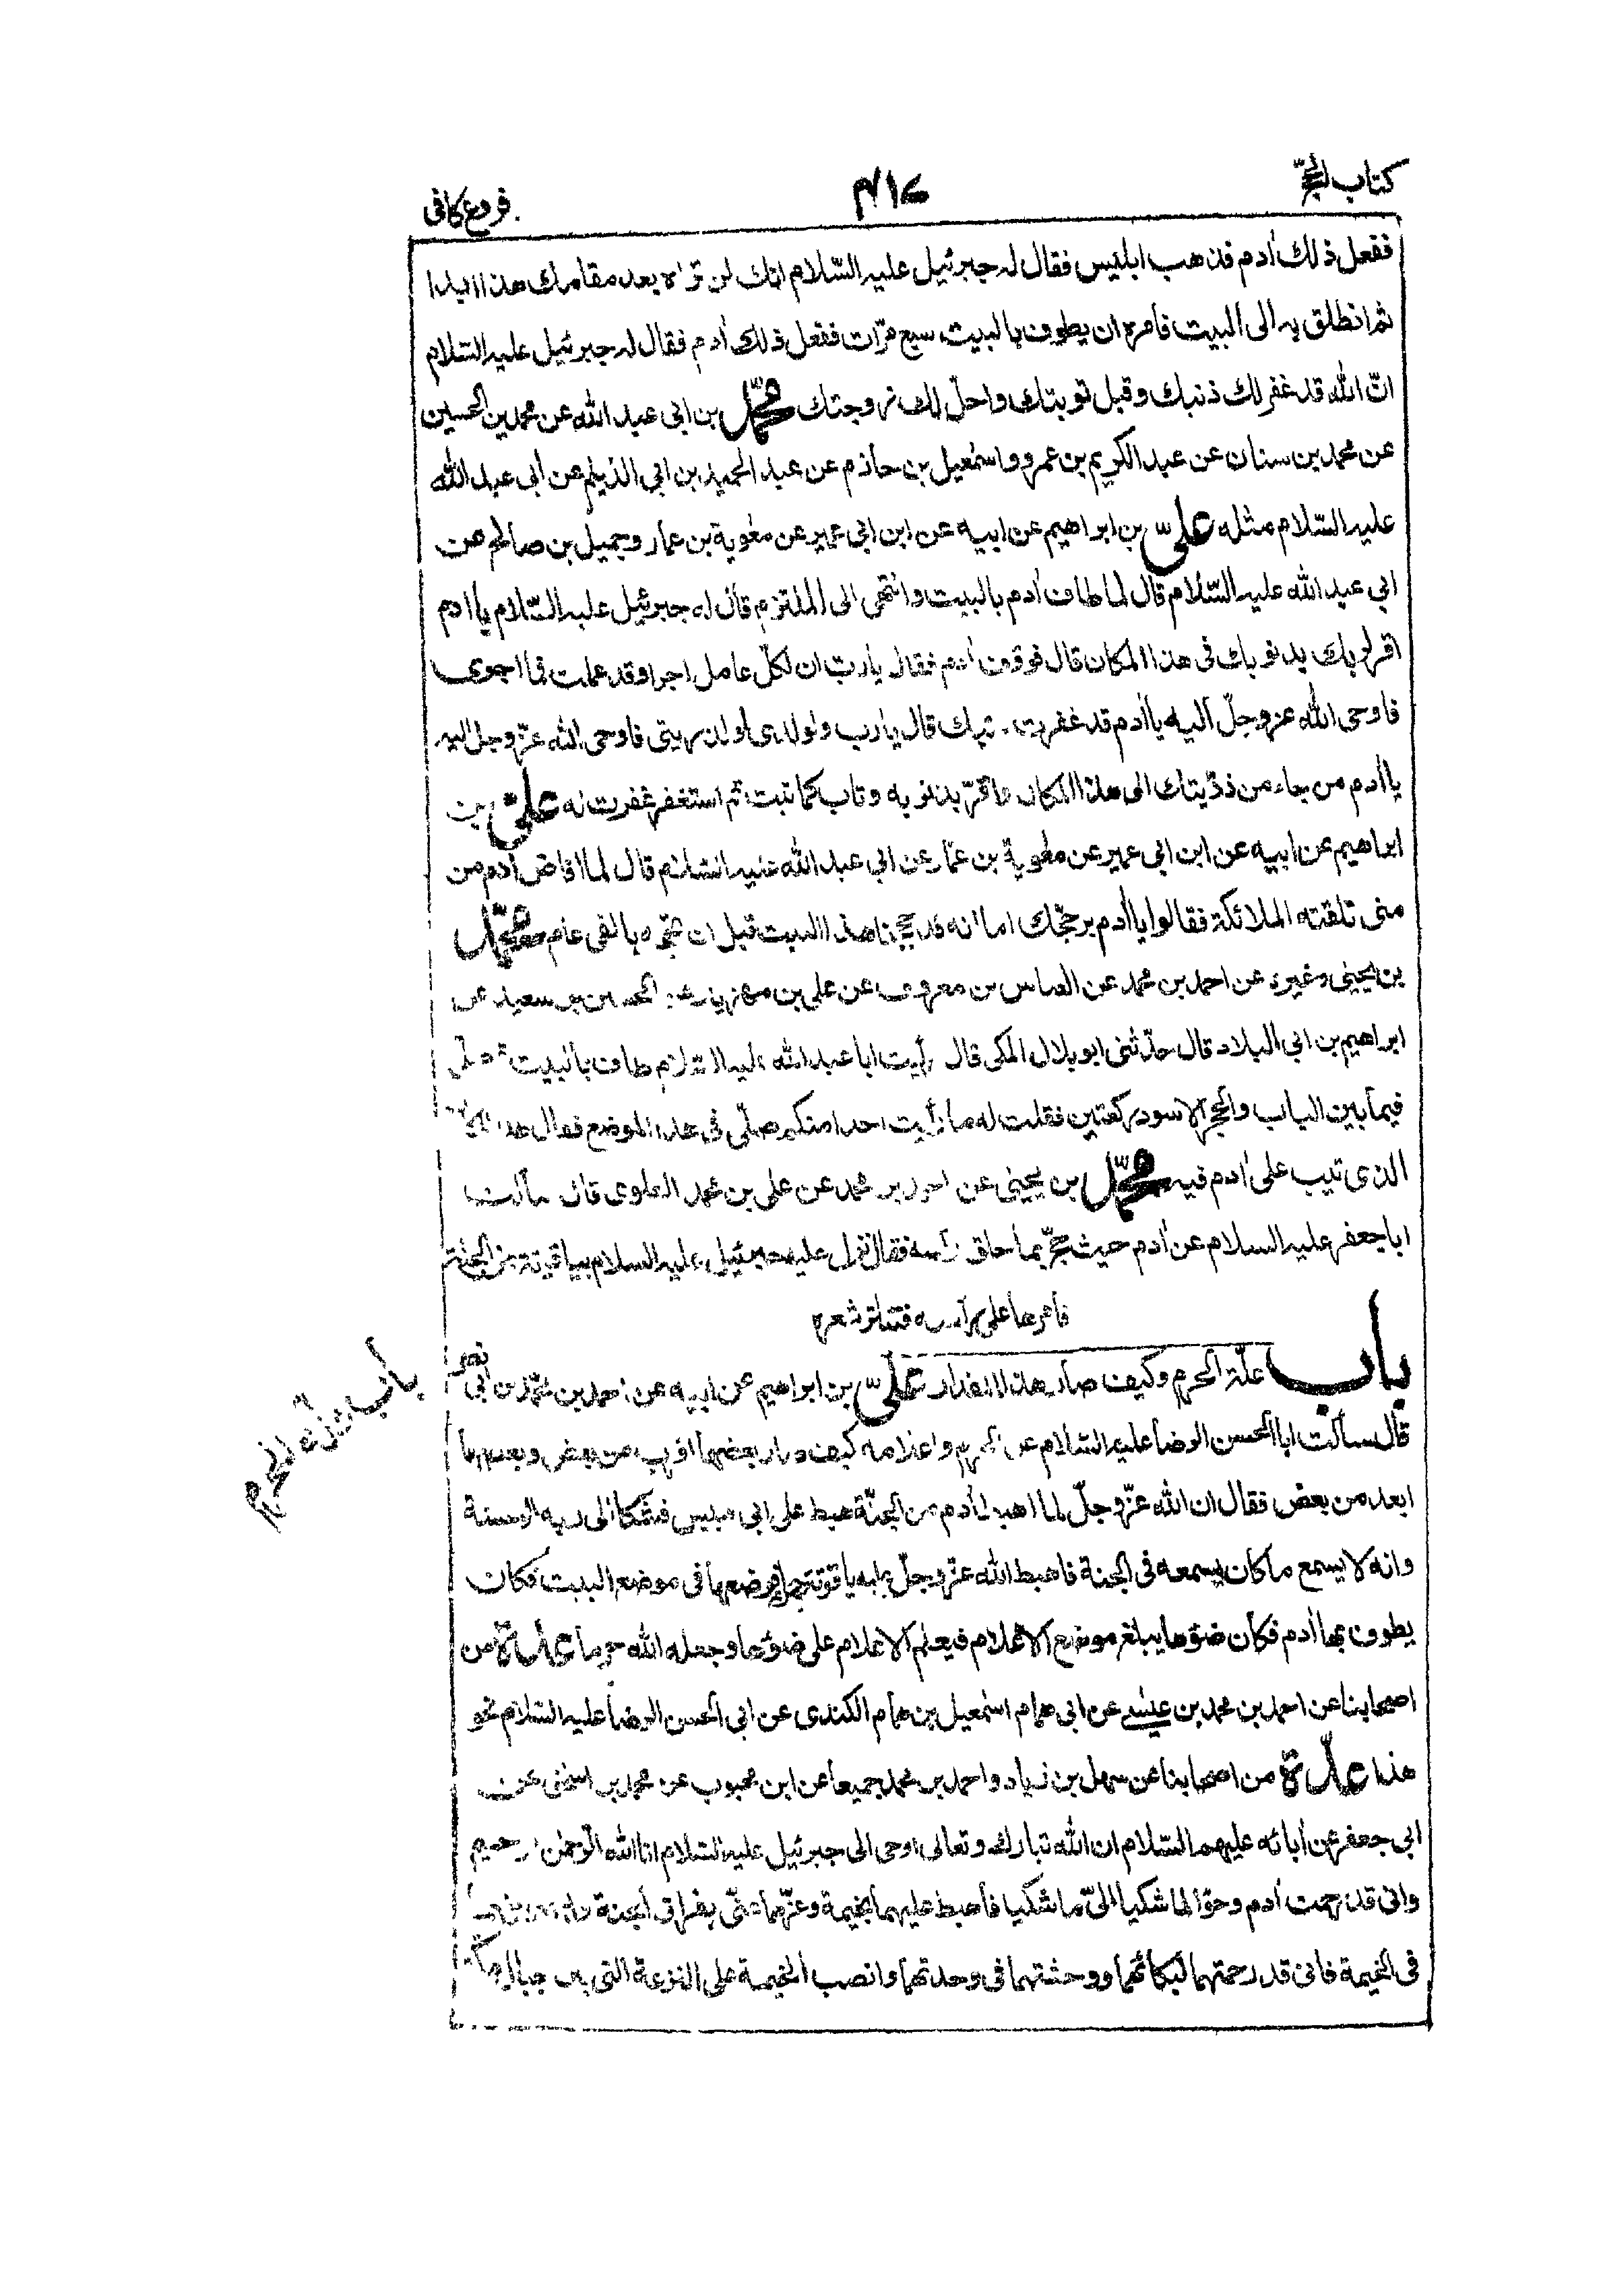 كتاب الحجّ
فروع كافى
ففعل ذلك أدم فذهب ابليس فقال له جبرئيل عليه السّلام انك لن تراه بعد مقامك هذا ابدا
ثم انطلق به الى البيت فامره ان يطوف بالبيت سبع مرّات ففعل ذلك أدم فقال له جبرئيل عليه السّلام
انّ الله قد غفر لك ذنبك وقبل توبتك واحلّ لك زوجتك محمّد بن ابى عبد الله عن محمد بن الحسين
عن محمد بن سنان عن عبد الكريم بن عمرو واسمٰعيل بن حازم عن عبد الحميد ابن ابي الديلم عن أبى عبد الله
عليه السّلام مثله علىّ بن ابراهيم عن ابيه عن ابن ابى عمير عن معٰوية بن عمار وجميل بن صالح عن
ابي عبد الله عليه السّلام قال لما طاف أدم بالبيت وانتهى الى الملتزم قال له جبرئيل عليه السّلام يا ادم
اقر لربك بذنوبك فى هذا المكان قال فوقف أدم فقال يارب ان لكلّ عامل اجرا وقد عملت فما اجرى
فاوحى الله عز وجلّ اليه يا أدم قد غفرت ذنبك قال يارب ولولدى او لذريتى فاوحى الله عزّ وجل اليه
يا أدم من جاء من ذرّيتك الى هذا المكان واقرّ بذنوبه وتاب كما تبت ثم استغفر غفرت له علىّ بن
ابراهيم عن ابيه عن ابن ابى عمير عن معٰوية بن عمّار عن ابي عبد الله عليه السلام قال لما افاض أدم من
منى تلقته الملائكة فقالوا يا أدم برحجّك اما انه قد حججنا هذا البيت قبل ان تحجّه بالفى عام محمّد
بن يحيٰى وغيره عن احمد بن محمد عن العباس بن معروف عن على بن مهزيار عن الحسين بن سعيد عن
ابراهيم بن ابي البلاد قال حدّثنى ابو بلال المكى قال رأيت ابا عبد الله عليه السّلام طاف بالبيت ثم صلّى
فيما بين الباب والحجر الاسود ركعتين فقلت له ما رأيت احدا منكم صلّى فى هذا الموضع فقال هذا المكان
الذى تيب على أدم فيه محمّد بن يحيٰى عن احمد بن محمد عن على بن محمد العلوى قال سألت
ابا جعفر عليه السلام عن أدم حيث حجّ بما حلق رأسه فقال نزل عليه جبرئيل عليه السلام بياقوتة من الجنّة
فأمرها على رأسه فتناثر شعره
باب علّة الحرم وكيف صار هذا المقدار علىّ بن ابراهيم عن ابيه عن احمد بن محمّد بن ابى نصر
قال سألت ابا الحسن الرضا عليه السّلام عن الحرم واعلامه كيف صار بعضها اقرب من بعض وبعضها
ابعد من بعض فقال ان الله عزّ وجلّ لما اهبط أدم من الجنّة هبط على ابى قبيس فشكا الى ربه الوحشة
وانه لا يسمع ما كان يسمعه فى الجنة فاهبط الله عزّ وجلّ عليه ياقوتة حمراء فوضعها فى موضع البيت فكان
يطوف بها أدم فكان ضوءها يبلغ موضع الاعلام فيعلم الاعلام على ضوئها وجعله الله حرما عدّة من
اصحابنا عن احمد بن محمد بن عيسى عن ابى همام اسمٰعيل بن همام الكندى عن ابى الحسن الرضا عليه السّلام نحو
هذا عدّة من اصحابنا عن سهل بن زياد واحمد بن محمد جميعا عن ابن محبوب عن محمد بن اسحٰق عن
ابى جعفر عن أبائه عليهم السّلام ان الله تبارك وتعالى اوحى الى جبرئيل عليه السّلام انا الله الرّحمٰن الرحيم
وانى قد رحمت أدم وحوّا لما شكيا الىّ ما شكيا فأهبط عليهما بخيمة وعزّهما عنّى بفراق الجنة
فى الخيمة فانى قد رحمتهما لبكائهما ووحشتهما فى وحدتهما وانصب الخيمة على النزعة التى بين جبال مكة
باب علّة الحرم